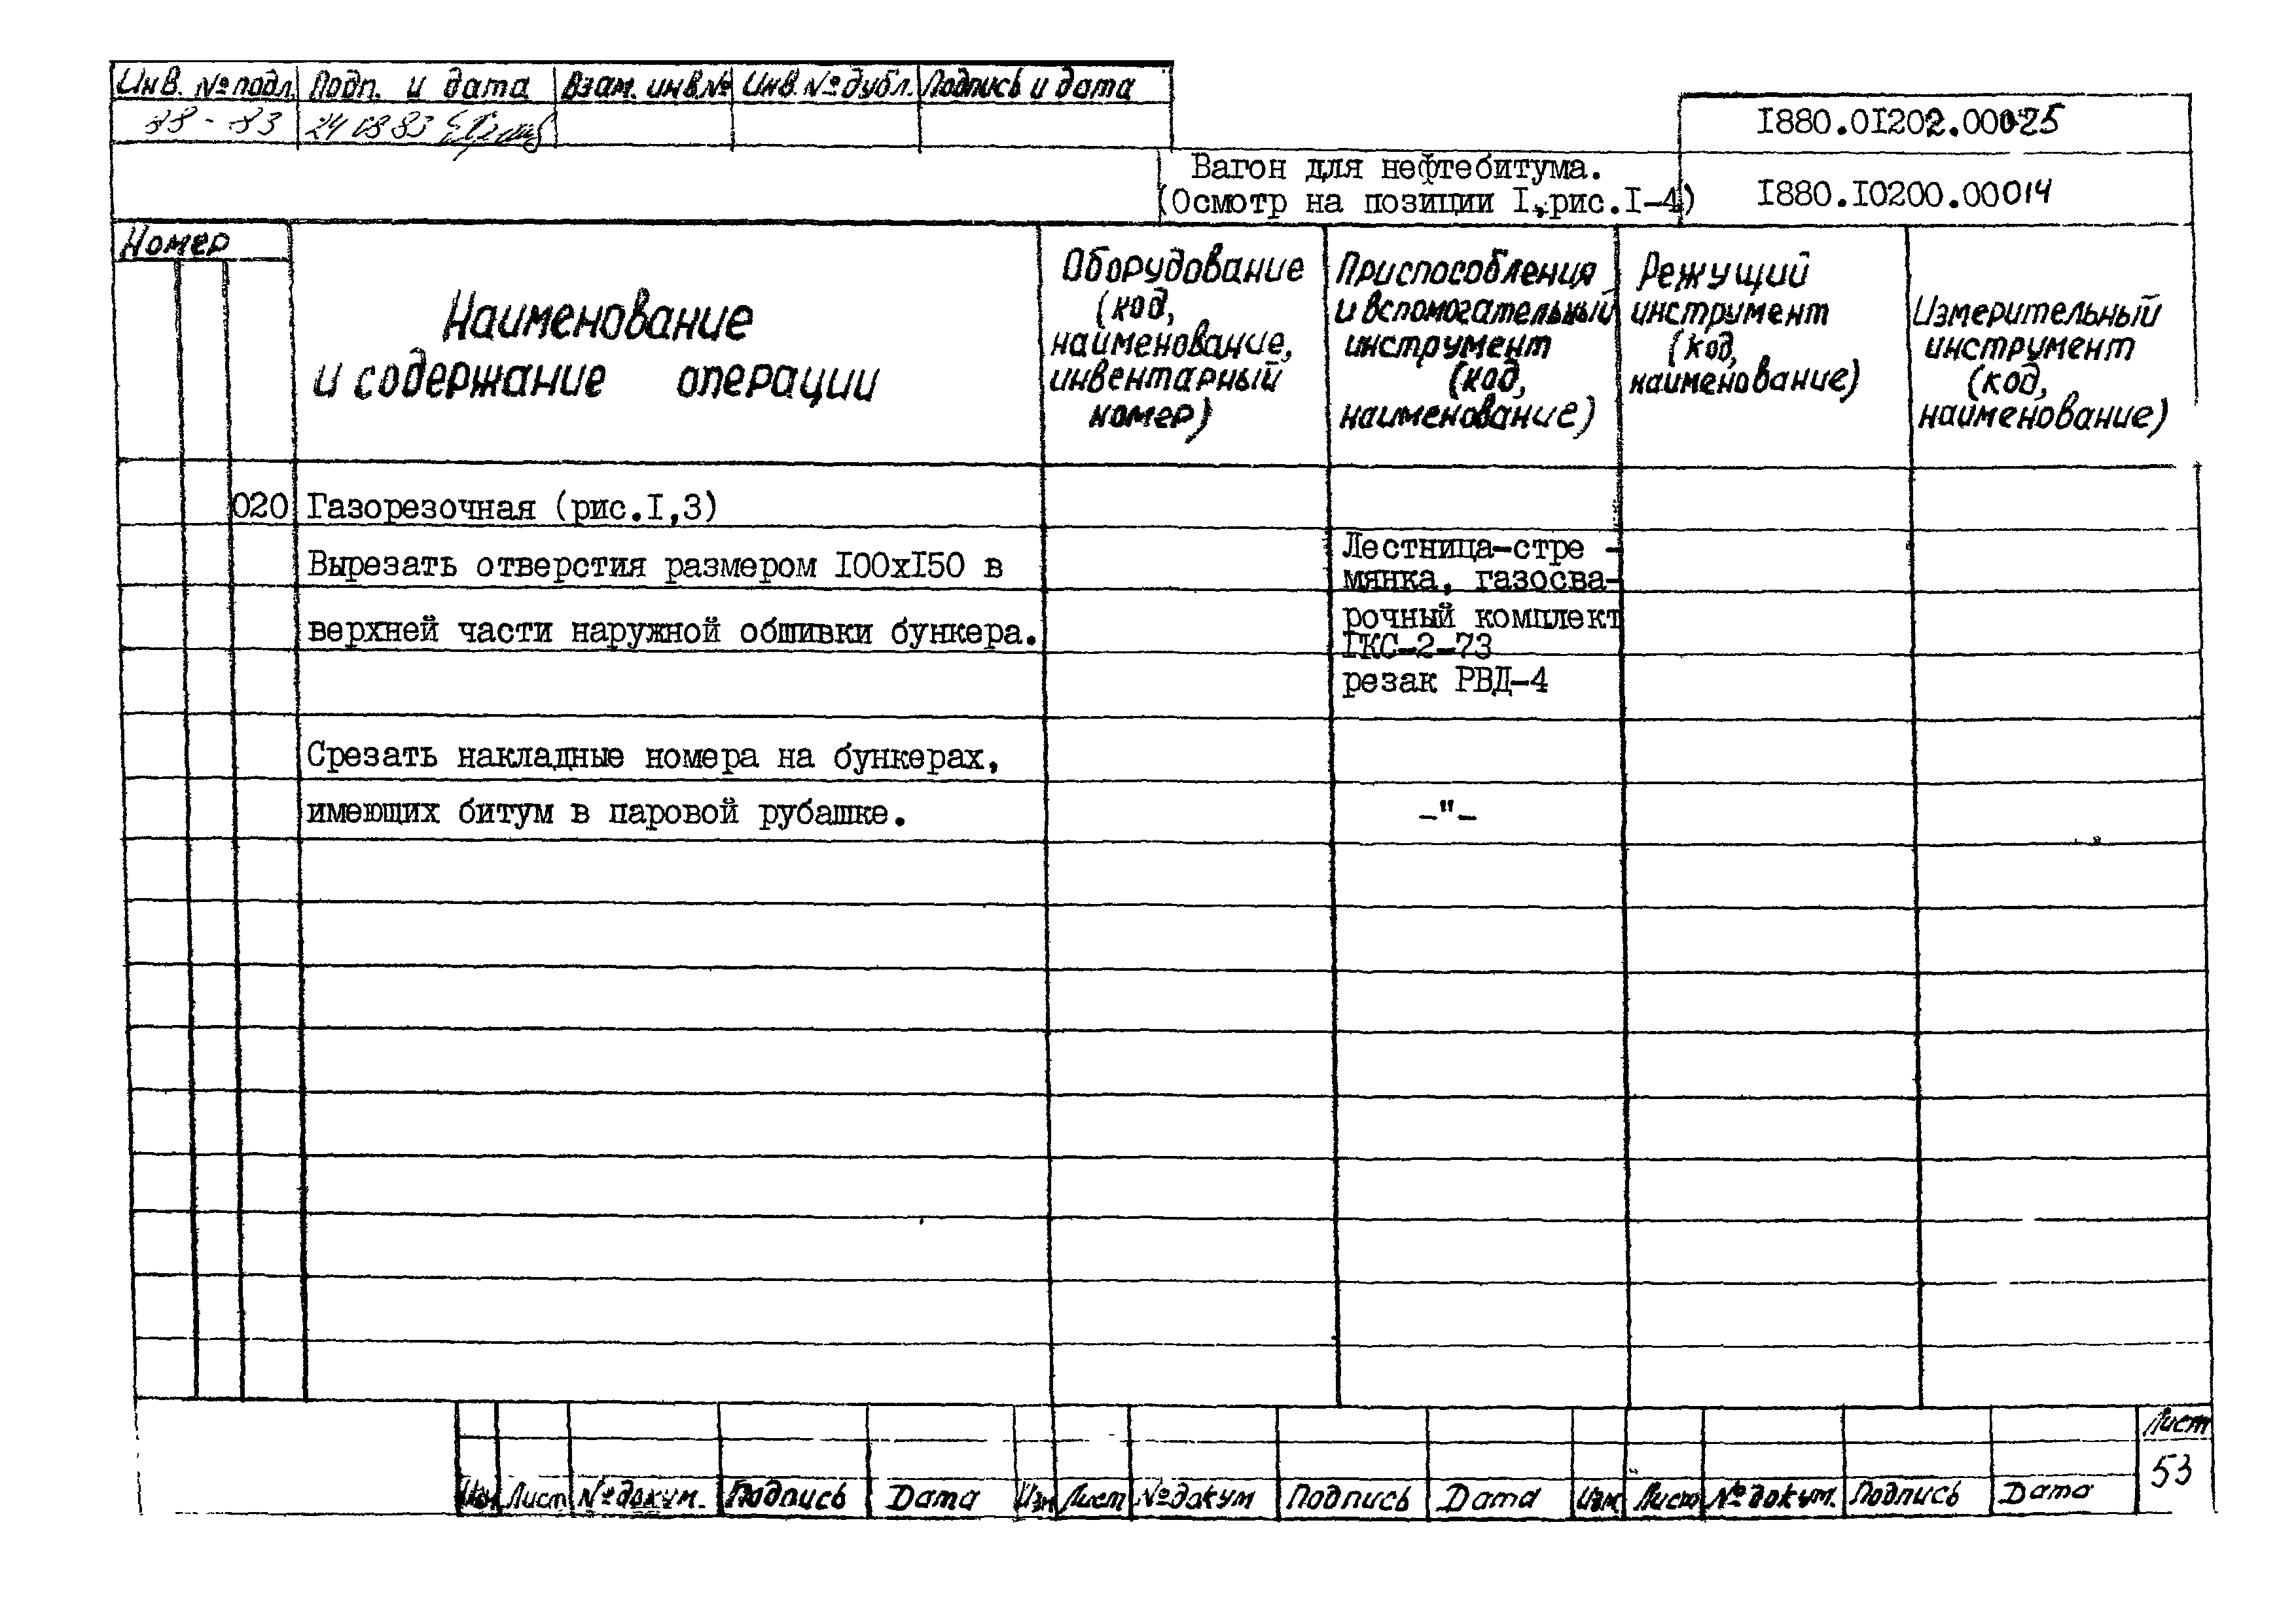 Инв. № подл. Подп. и дата Взам. инв.№ Инв. № дубл. Подпись и дата
88-83 24 08 83
I880.0I202.00025
Вагон для нефтебитума.
(Осмотр на позиции I,рис.I-4)
I880.I0200.00014
Номер
Наименование
и содержание операции
Оборудование
(код,
наименование,
инвентарный
номер)
Приспособления
и вспомогательный
инструмент
(код,
наименование)
Режущий
инструмент
(код,
наименование)
Измерительный
инструмент
(код,
наименование)
020 Газорезочная (рис.I,3)
Вырезать отверстия размером I00хI50 в
верхней части наружной обшивки бункера.
Лестница-стре -
мянка, газосва-
рочный комплект
ГКС-2-73
резак РВД-4
Срезать накладные номера на бункерах,
имеющих битум в паровой рубашке.
-"-
Лист
53
Изм Лист № докум. Подпись Дата Изм Лист № докум Подпись Дата Изм. Лист № докум. Подпись Дата